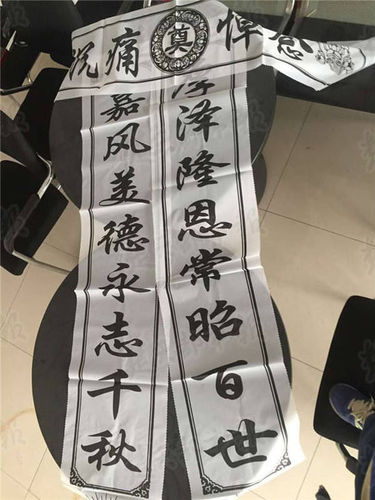 沉痛奠悼念
泽隆恩常昭百世
嘉风美德永志千秋